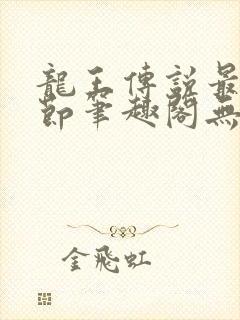 龍王傳說最
節筆趣閣無
金飛虹